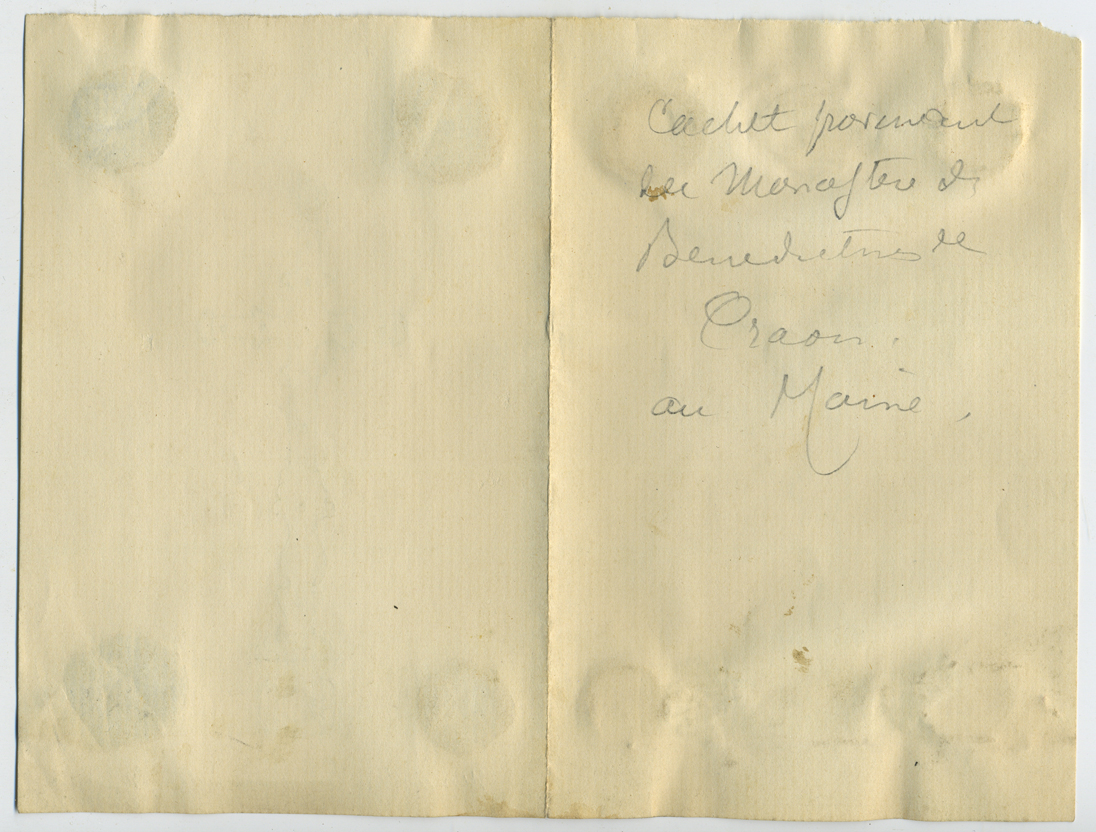 Cachet provenant
du Monastère de
Benedictines de
Craon.
au Maine,